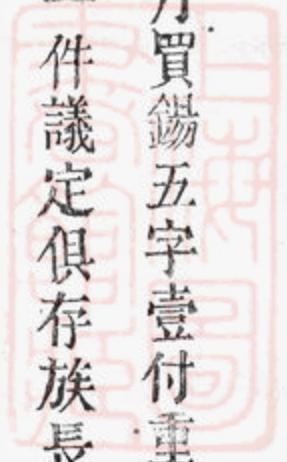 買錫五字壹付重
件議定俱存族長